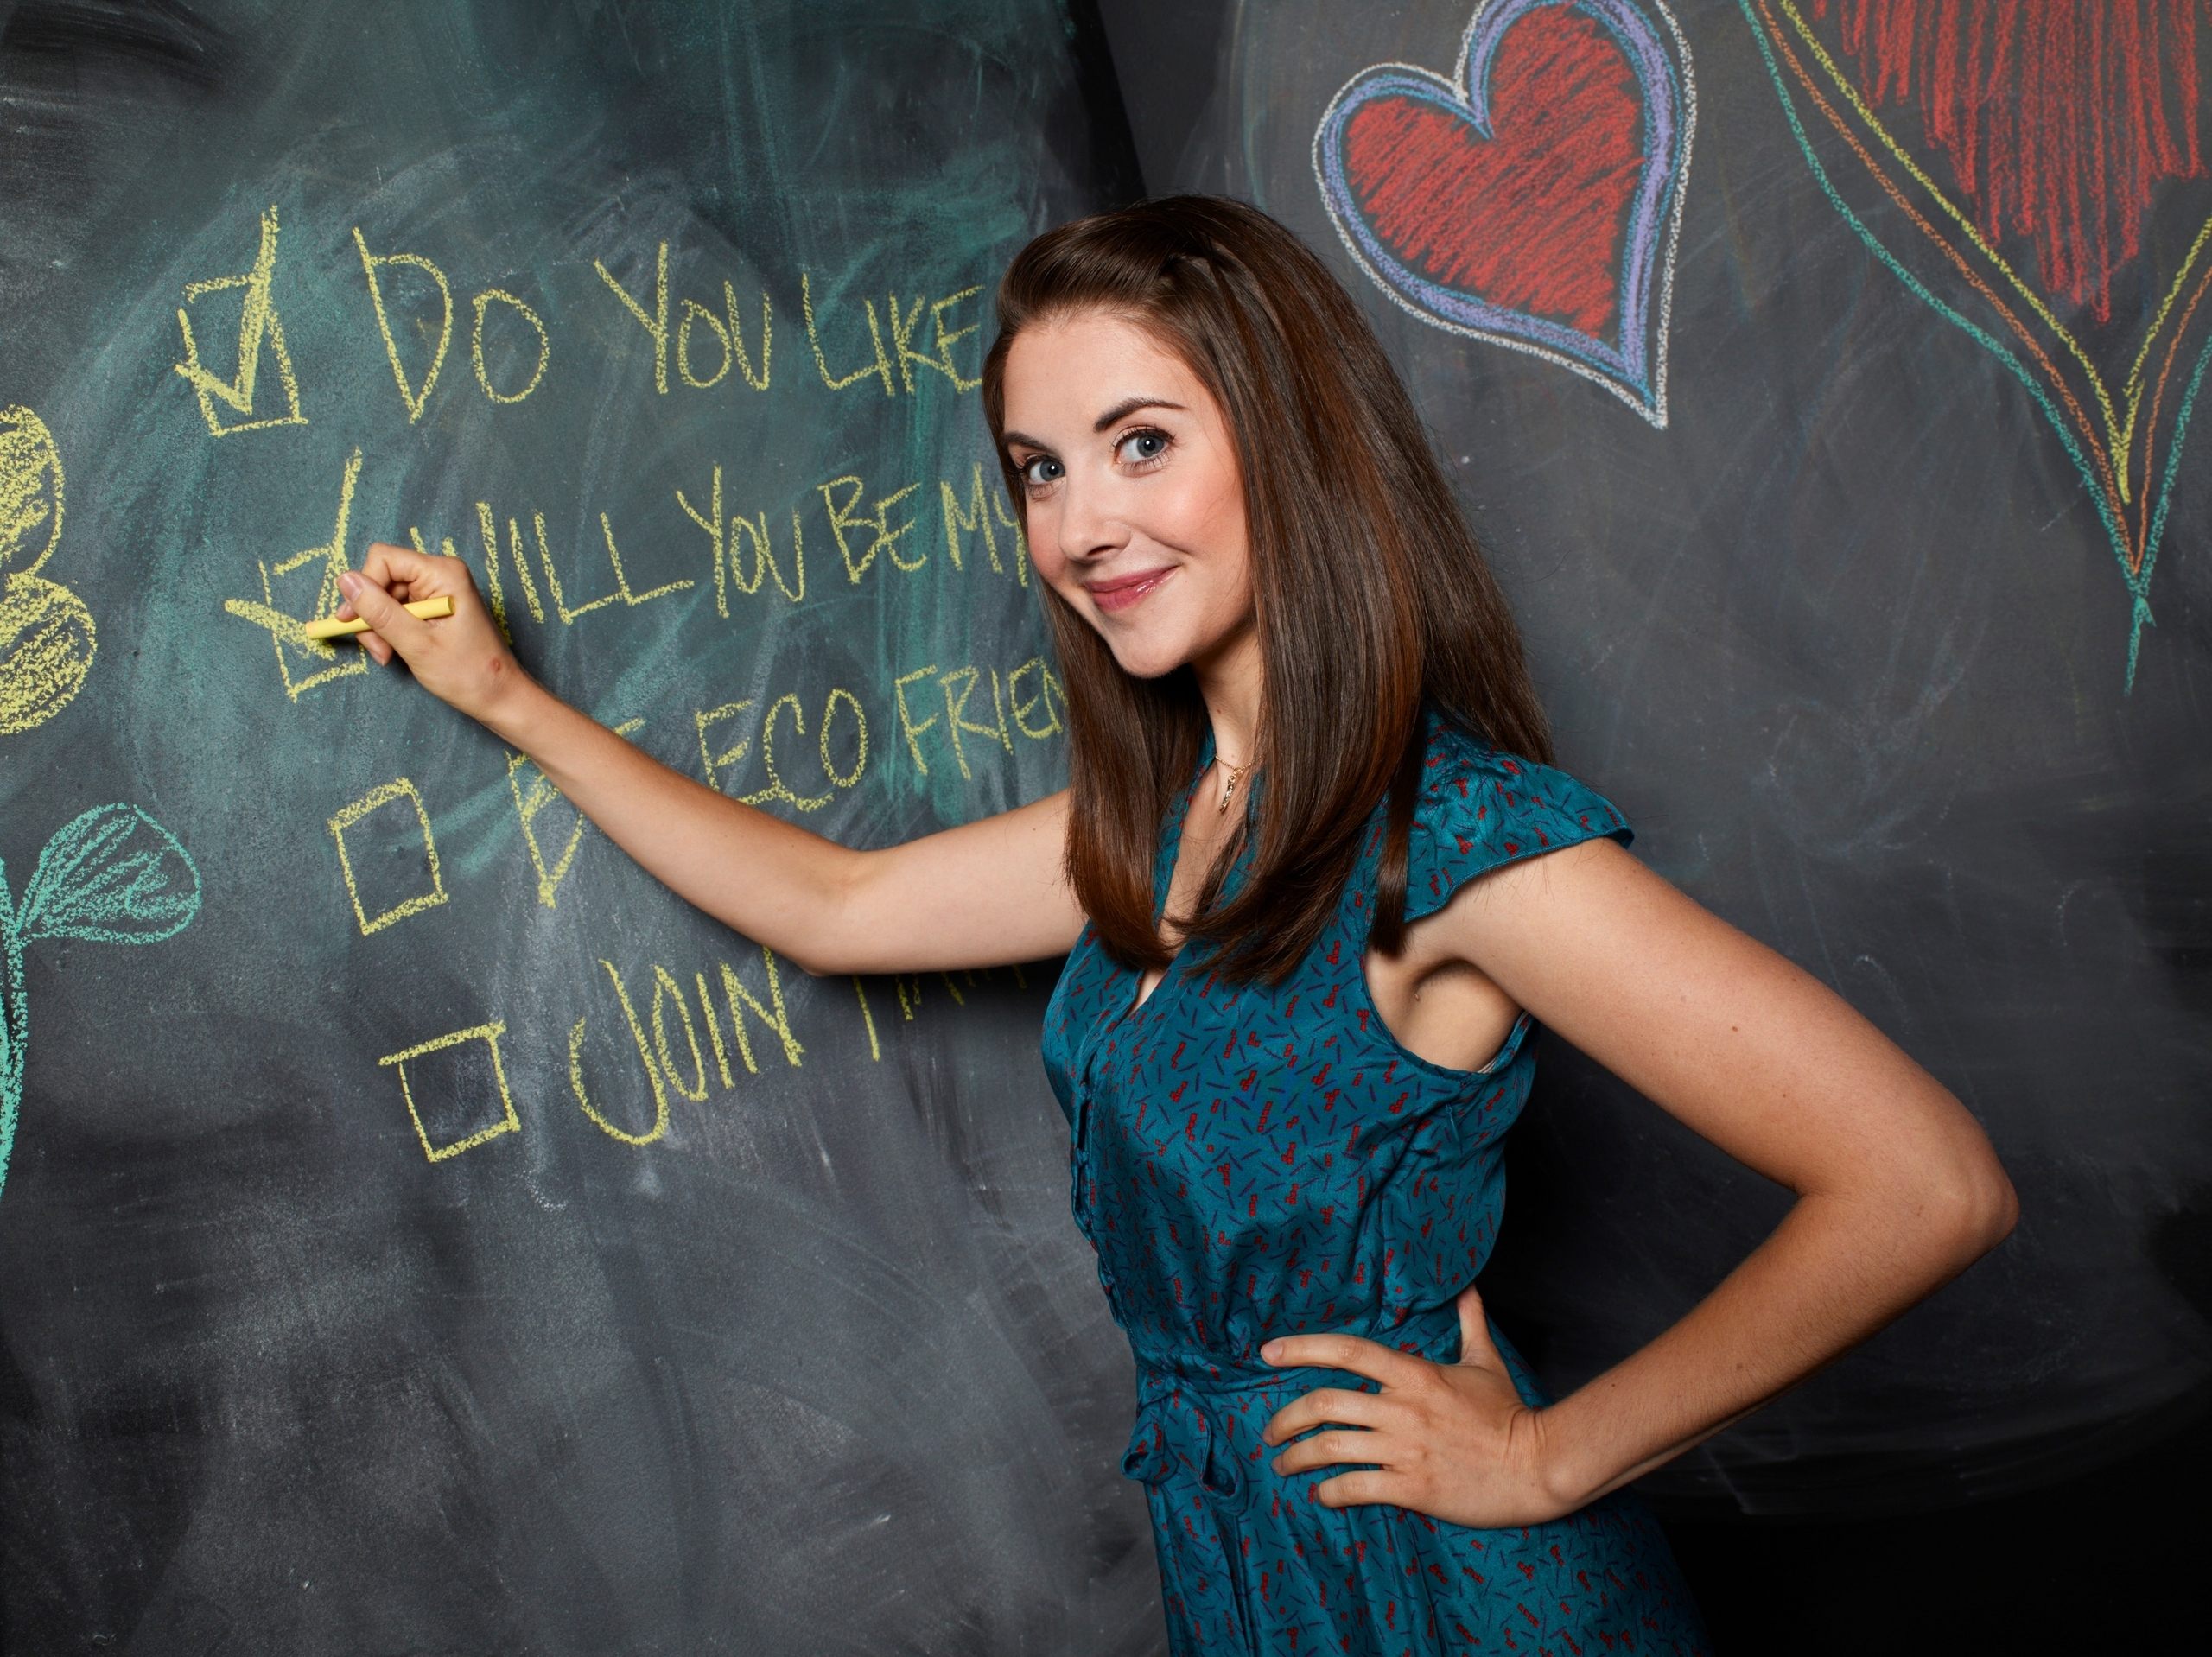 DO YOU LIKE
WILL YOU BE MY
BE ECO
JOIN